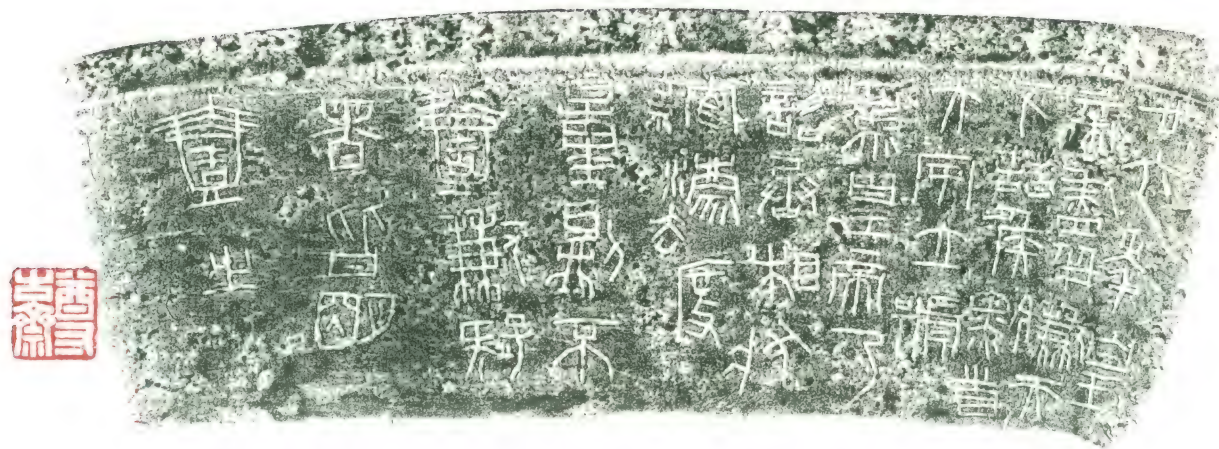 廿六年皇
帝盡并兼天
下諸侯黔首
大安立號
為皇帝乃
詔丞相狀
綰法度
量則不
壹歉疑
者皆明
壹之
尊古齋